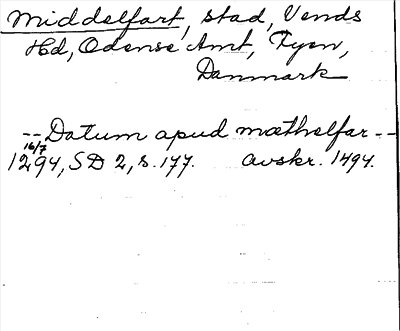 Middelfart, stad, Vends
Hd, Odense Amt, Fyen,
Danmark
-- Datum apud mæthelfar --
16/7
1294, SD 2, s. 177. avskr. 1494.